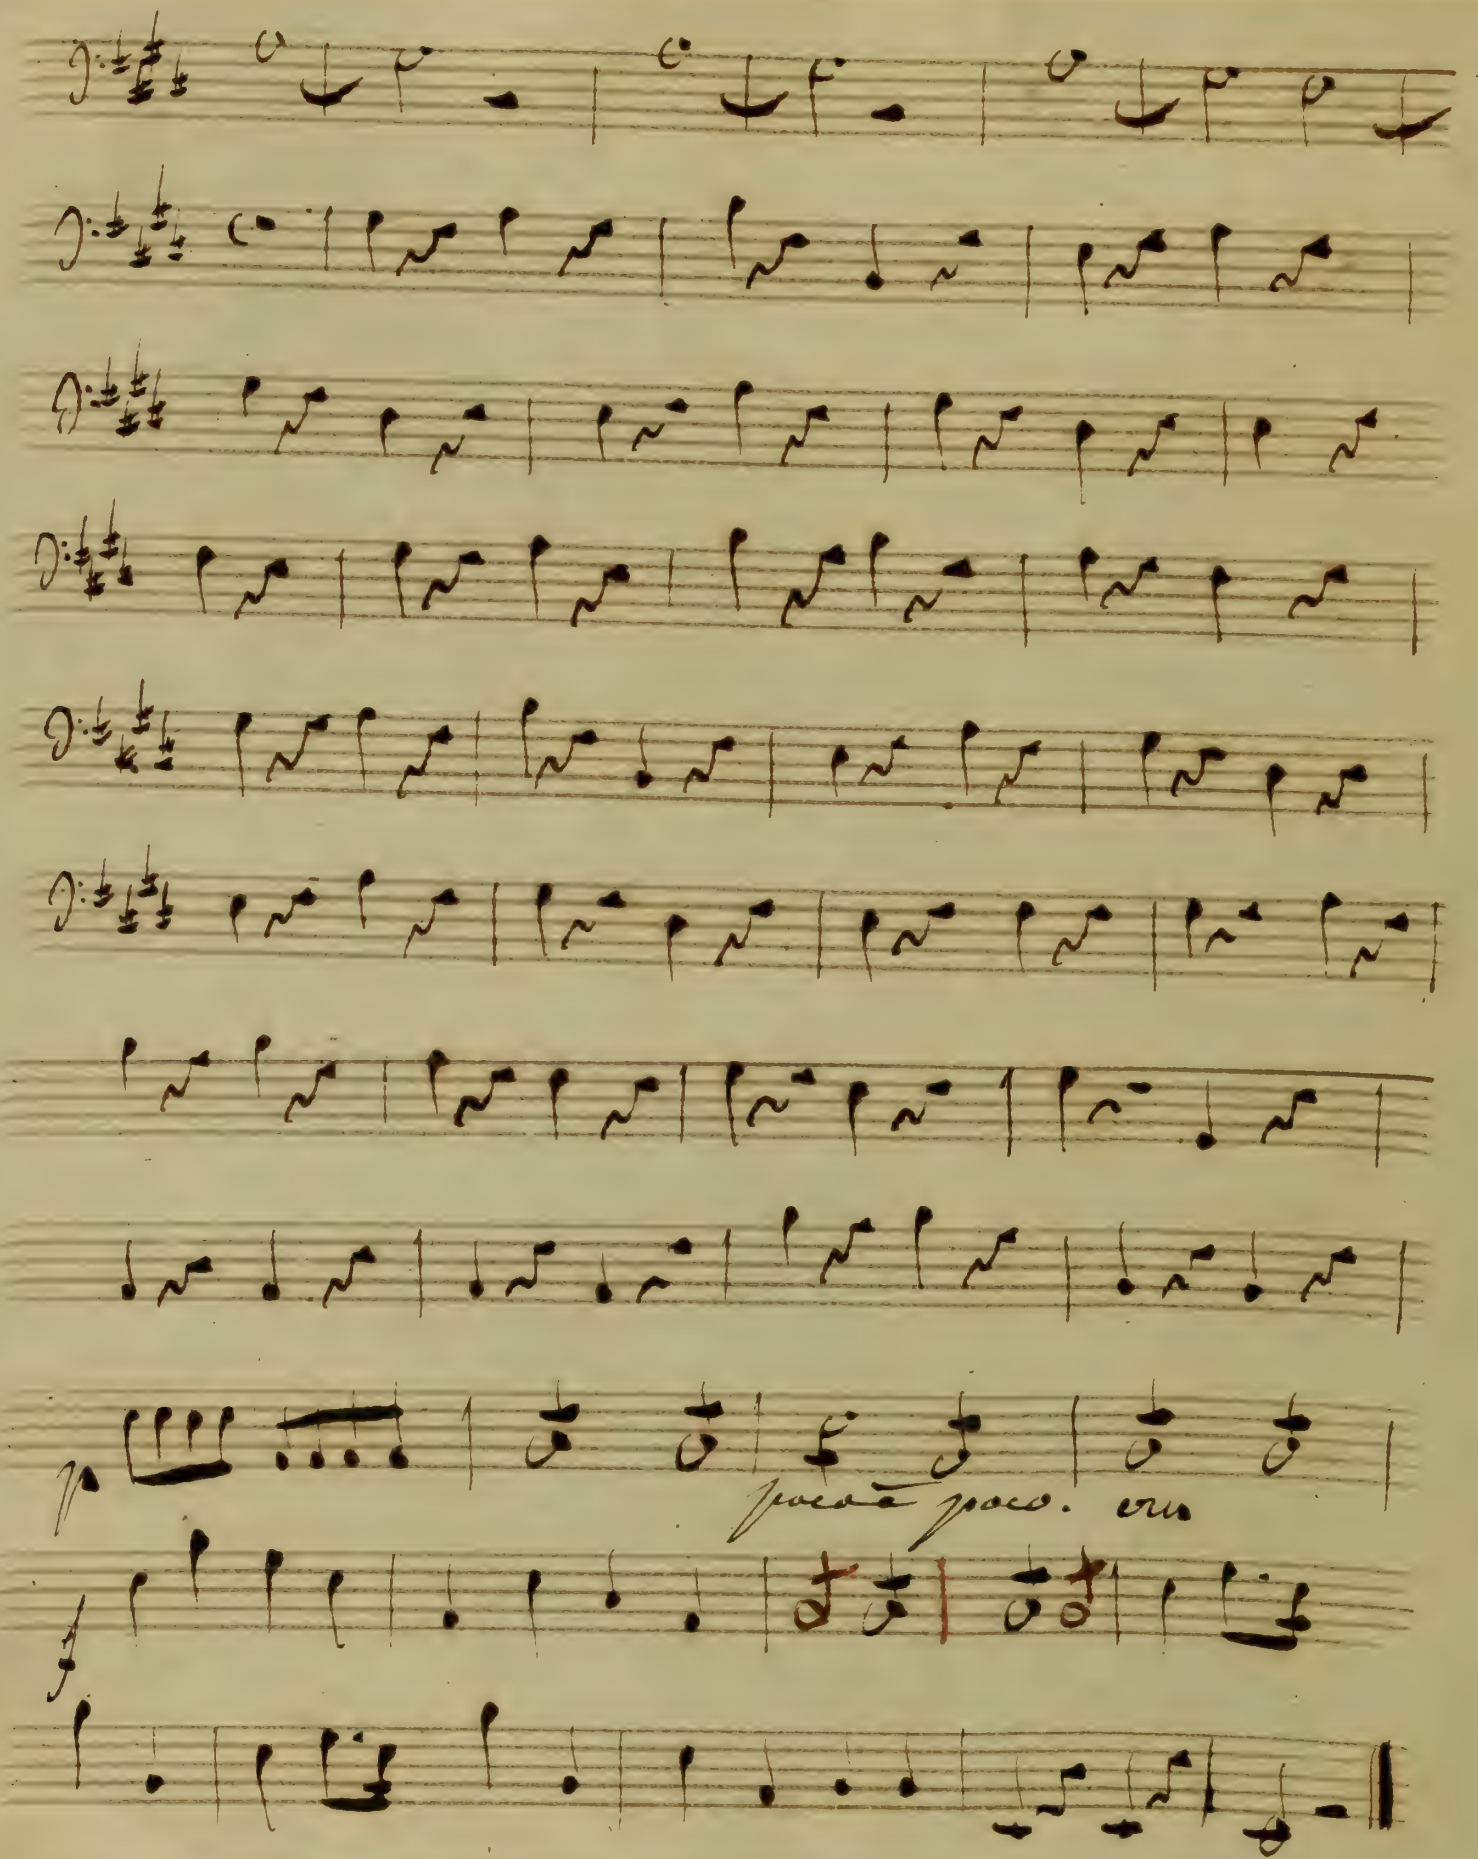 p
poco à poco. cres
f